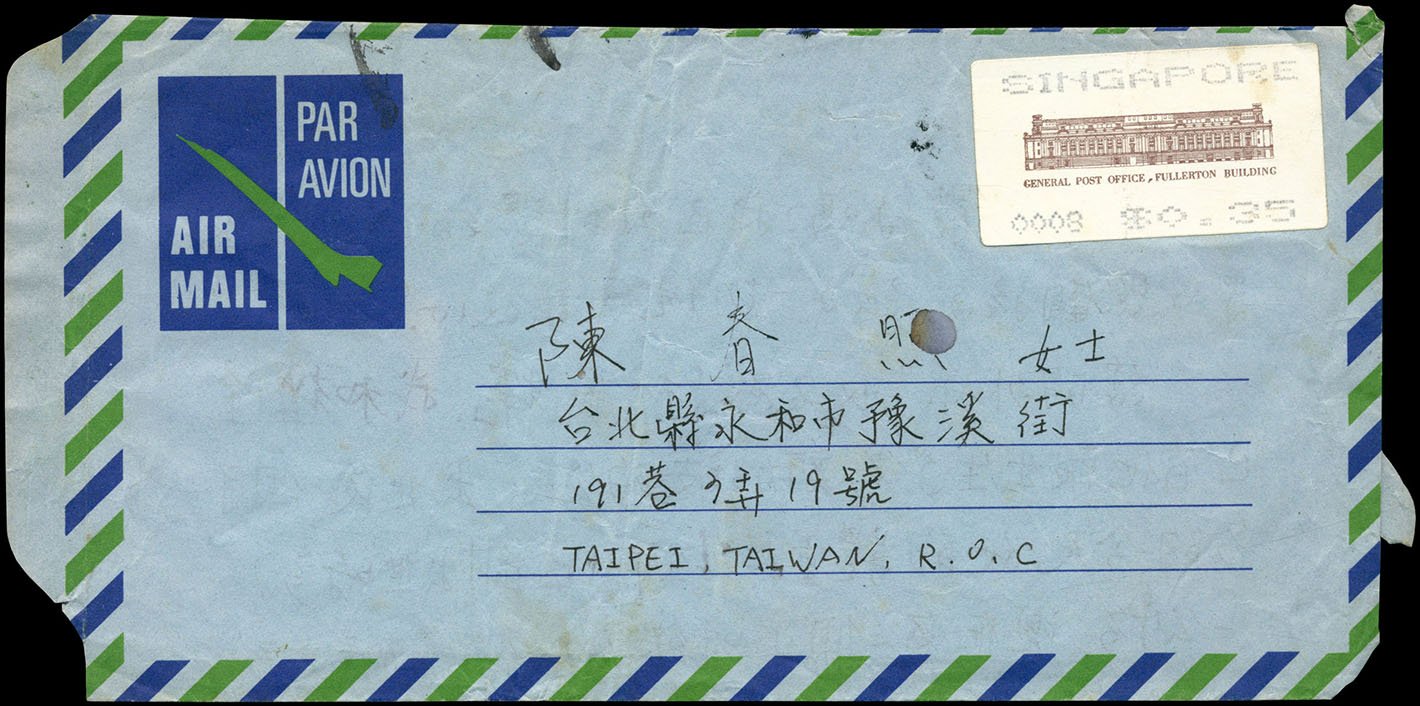 PAR
AVION
AIR
MAIL
SINGAPORE
GENERAL POST OFFICE, FULLERTON BUILDING
0008 $0.35
陳春照女士
台北縣永和市豫溪街
191巷 弄19號
TAIPEI, TAIWAN, R.O.C